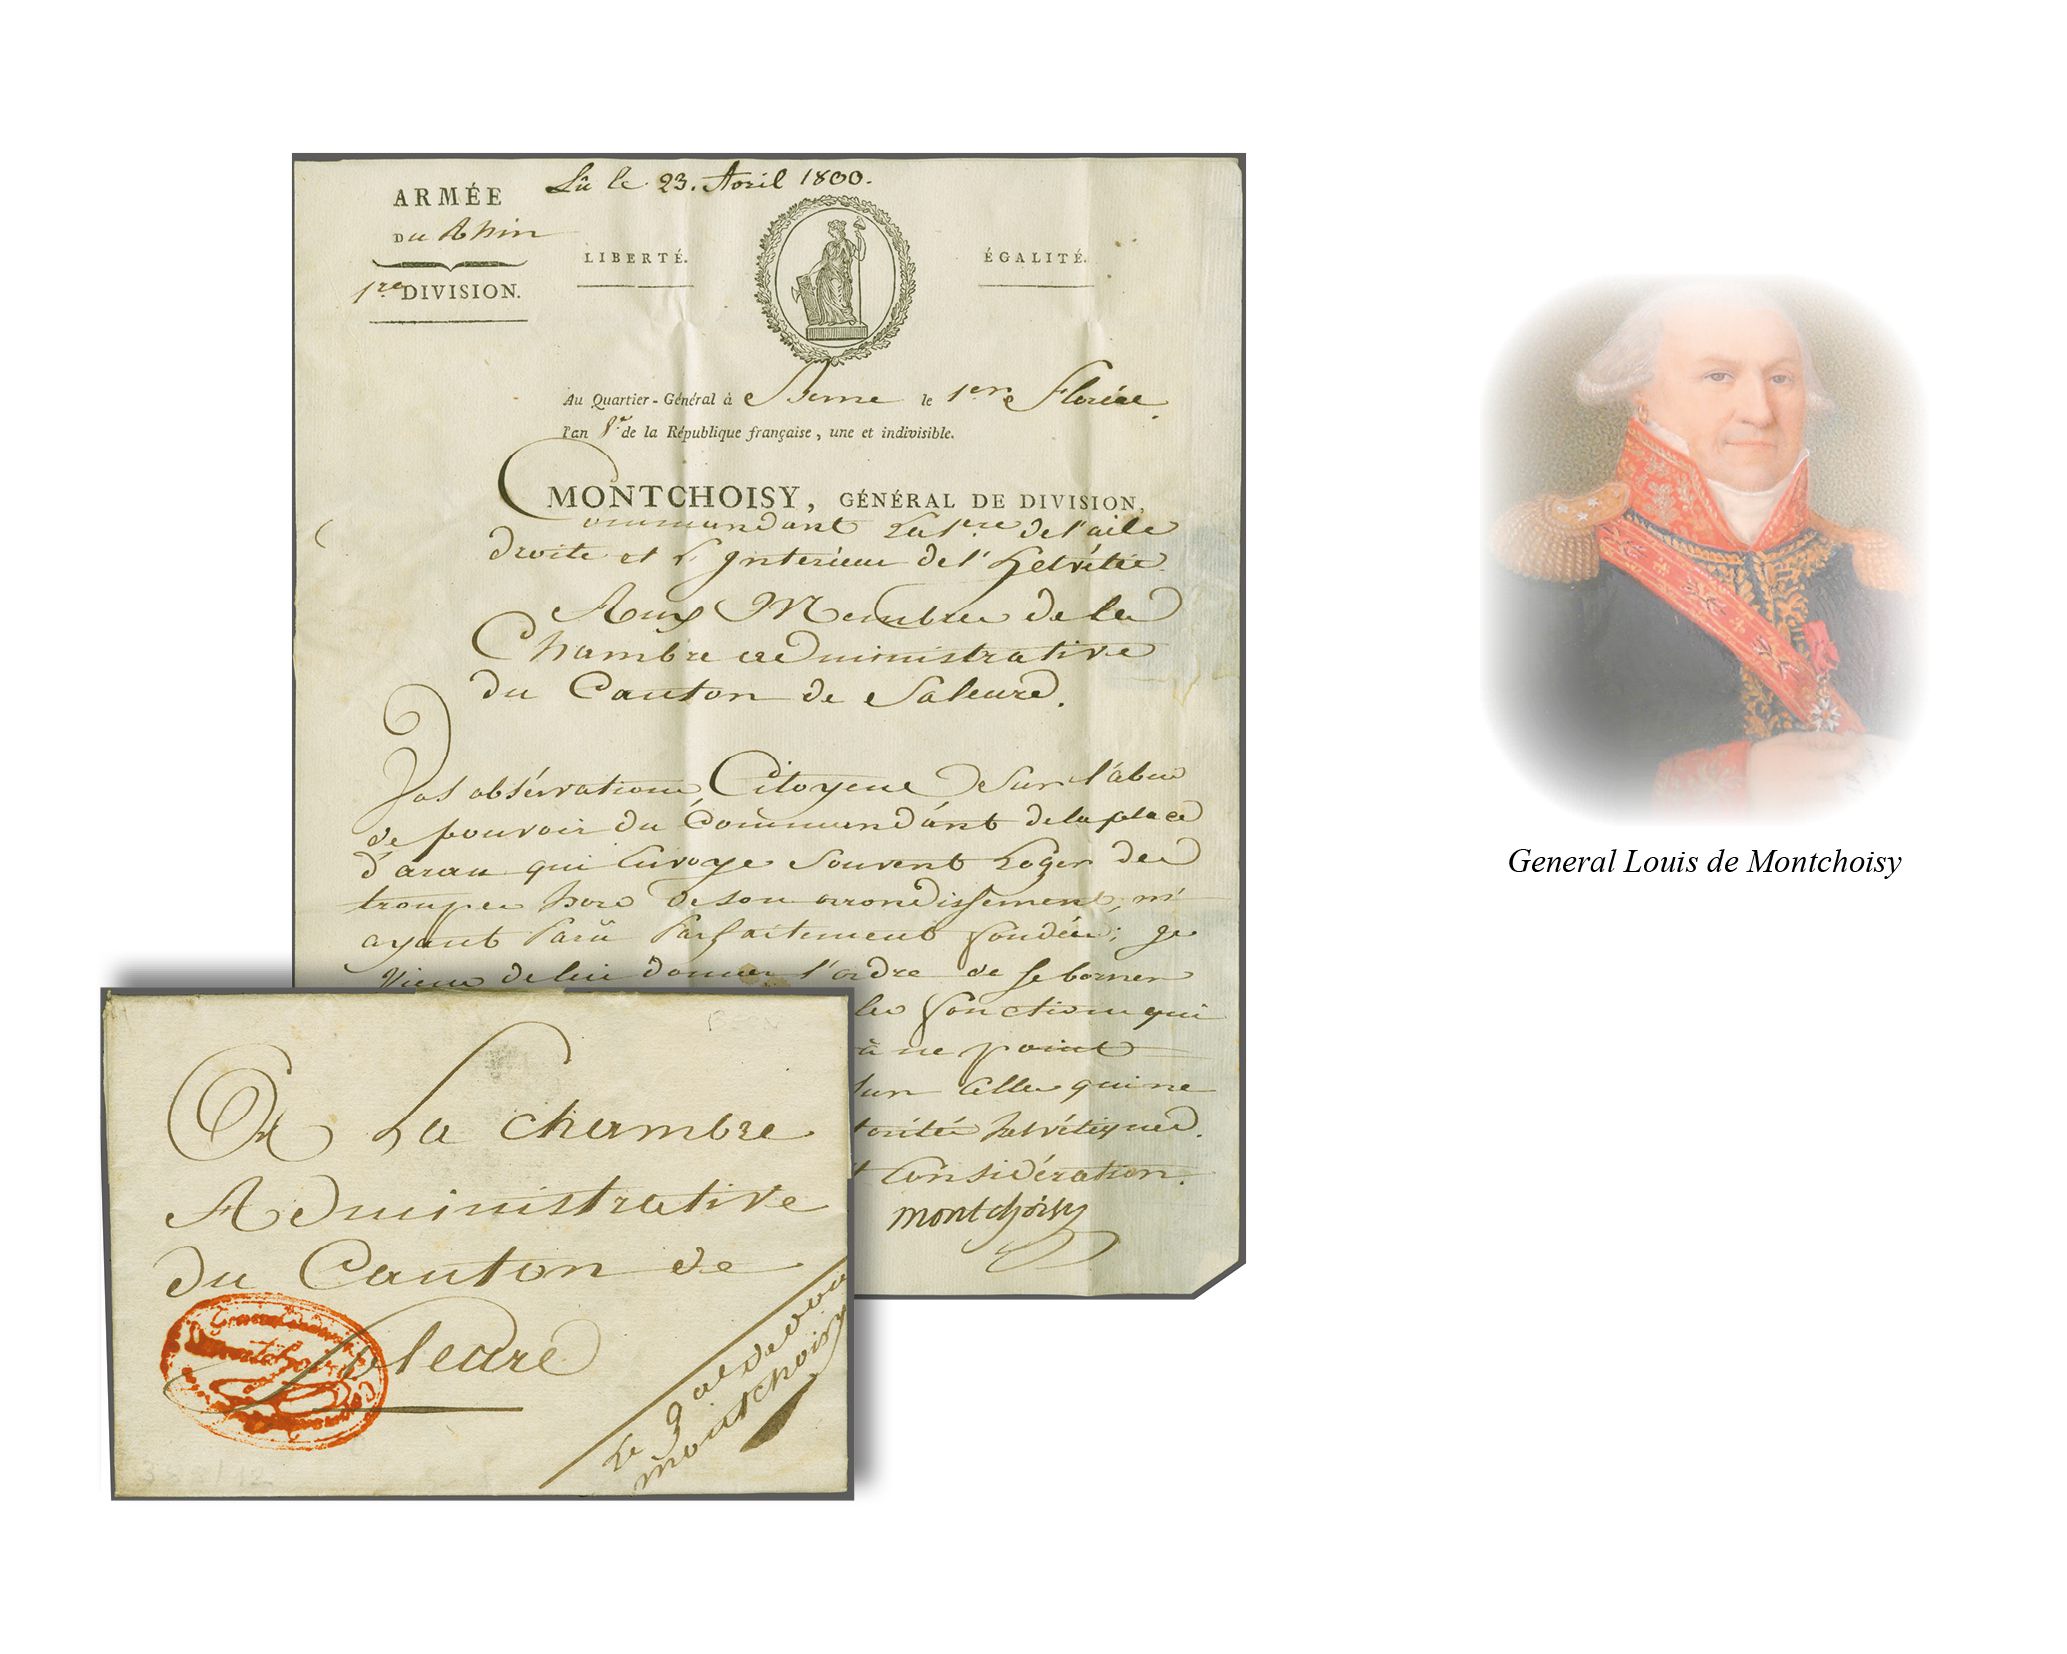 Lû le 23. Avril 1800.
ARMÉE
DU Rhin
LIBERTÉ.
ÉGALITÉ.
1re DIVISION.
Au Quartier-Général à Berne le 1er Floréal
l'an 8e de la République française, une et indivisible.
MONTCHOISY, GÉNÉRAL DE DIVISION,
Commandant la 1ere de l'aile
droite et l'Interieur de l'helvétie
Aux Membres de la
Chambre administrative
du Canton de Saleure.
Vos obsérvations Citoyens sur l'abus
de pouvoir du Commandant de la place
d'arau qui Envoye Souvent Loger des
troupes hors de son arrondissement, m'
ayant Parû Parfaitement fondées; je
viens de lui donner l'ordre de se borner
les fonctions qui
à ne point
sur celles qui ne
torités helvétiques.
et Considération.
montchoisy
A La chambre
Administrative
du Canton de
Soleure
Le gal de don
montchoisy
General Louis de Montchoisy